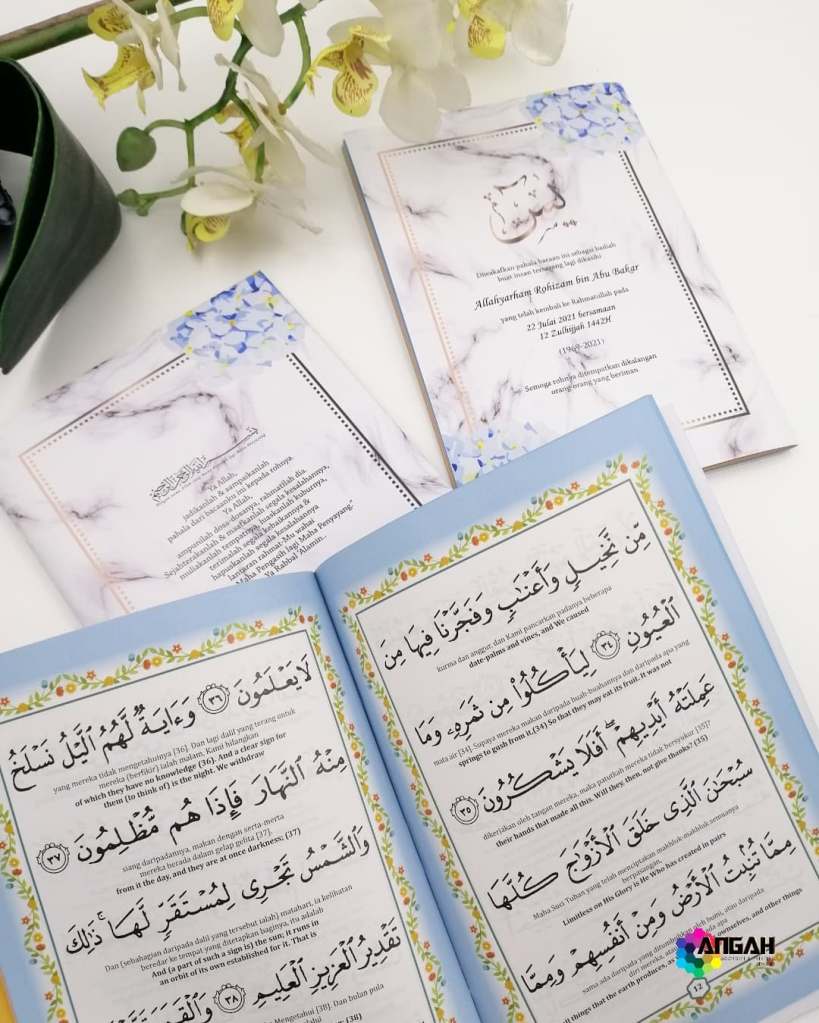 يس
Diwakafkan pahala bacaan ini sebagai hadiah
buat insan tersayang lagi dikasihi
Allahyarham Rohizam bin Abu Bakar
yang telah kembali ke Rahmatullah pada
22 Julai 2021 bersamaan
12 Zulhijjah 1442H
(1969-2021)
Semoga rohnya ditempatkan dikalangan
orang-orang yang beriman.
Ya Allah,
jadikanlah & sampaikanlah
pahala dari bacaanku ini kepada rohnya.
Ya Allah,
ampunilah dosa-dosanya, rahmatilah dia.
Sejahterakanlah & maafkanlah segala kesalahannya,
muliakanlah tempatnya, luaskanlah kuburnya,
terimalah segala kebaikannya &
hapuskanlah segala kesalahannya
lantaran rahmat-Mu wahai
Maha Pengasih lagi Maha Penyayang."
Ya Rabbal 'Alamin..
مِّن نَّخِيلٍ وَأَعْنَٰبٍ وَفَجَّرْنَا فِيهَا مِنَ
kurma dan anggur, dan Kami pancarkan padanya beberapa
date-palms and vines, and We caused
ٱلْعُيُونِ ٣٤ لِيَأْكُلُوا۟ مِن ثَمَرِهِۦ وَمَا
mata air [34]. Supaya mereka makan daripada buah-buahannya dan daripada apa yang
springs to gush from it,(34) So that they may eat its fruit. It was not
عَمِلَتْهُ أَيْدِيهِمْ ۖ أَفَلَا يَشْكُرُونَ ٣٥
dikerjakan oleh tangan mereka, maka patutkah mereka tidak bersyukur [35]?
their hands that made all this. Will they, then, not give thanks? (35)
سُبْحَٰنَ ٱلَّذِى خَلَقَ ٱلْأَزْوَٰجَ كُلَّهَا
Maha Suci Tuhan yang telah menciptakan makhluk-makhluk semuanya
berpasangan,
Limitless on His Glory is He Who has created in pairs
مِمَّا تُنۢبِتُ ٱلْأَرْضُ وَمِنْ أَنفُسِهِمْ وَمِمَّا
sama ada daripada yang ditumbuhkan oleh bumi, atau daripada
diri mereka, atau
all things that the earth produces, as ourselves, and other things
12
لَا يَعْلَمُونَ ٣٦ وَءَايَةٌ لَّهُمُ ٱلَّيْلُ نَسْلَخُ
yang mereka tidak mengetahuinya [36]. Dan lagi dalil yang terang untuk
mereka (berfikir) ialah malam. Kami hilangkan
of which they have no knowledge (36). And a clear sign for
them (to think of) is the night. We withdraw
مِنْهُ ٱلنَّهَارَ فَإِذَا هُم مُّظْلِمُونَ ٣٧
siang daripadanya, maka dengan serta-merta
mereka berada dalam gelap gelita [37].
from it the day, and they are at once darkness; (37)
وَٱلشَّمْسُ تَجْرِى لِمُسْتَقَرٍّ لَّهَا ۚ ذَٰلِكَ
Dan (sebahagian daripada dalil yang tersebut ialah) matahari, ia kelihatan
beredar ke tempat yang ditetapkan baginya, itu adalah
And (a part of such a sign is) the sun; it runs in
an orbit of its own established for it. That is
تَقْدِيرُ ٱلْعَزِيزِ ٱلْعَلِيمِ ٣٨ وَٱلْقَمَرَ
Mengetahui [38]. Dan bulan pula
(38)
ANGAH